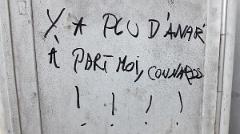 Y A PLU D'ANAR
A PART MOI, CONNARDS
! ! ! !